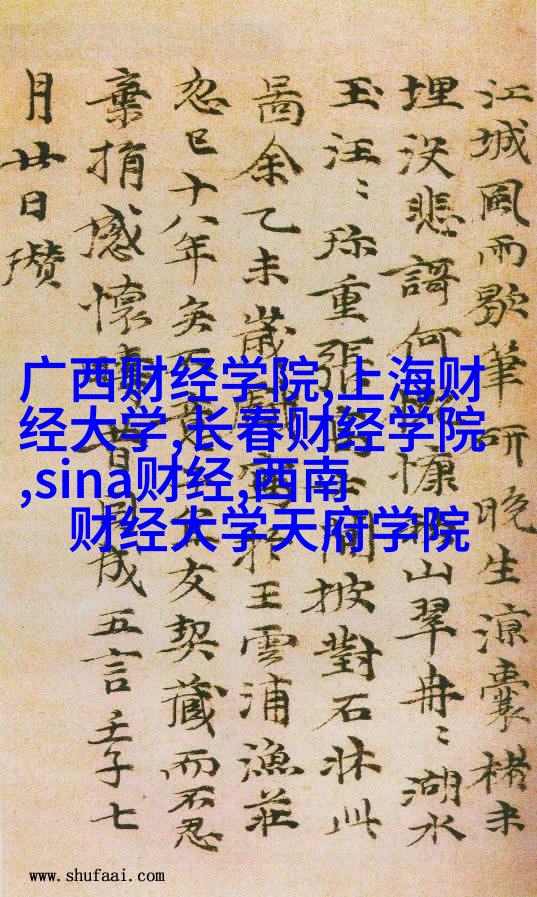 江城風雨歇筆研晚生涼囊楮未
埋没悲謌何慷山翠冉〻湖水
玉汪〻珎重張開披對石牀此
啚余乙未歲王雲浦漁莊
忽已十八年矣友契藏而不忍
棄捐感懷成五言壬子七
月廿日瓚
广西财经学院,上海财
经大学,长春财经学院
,sina财经,西南
财经大学天府学院
www.shufaai.com